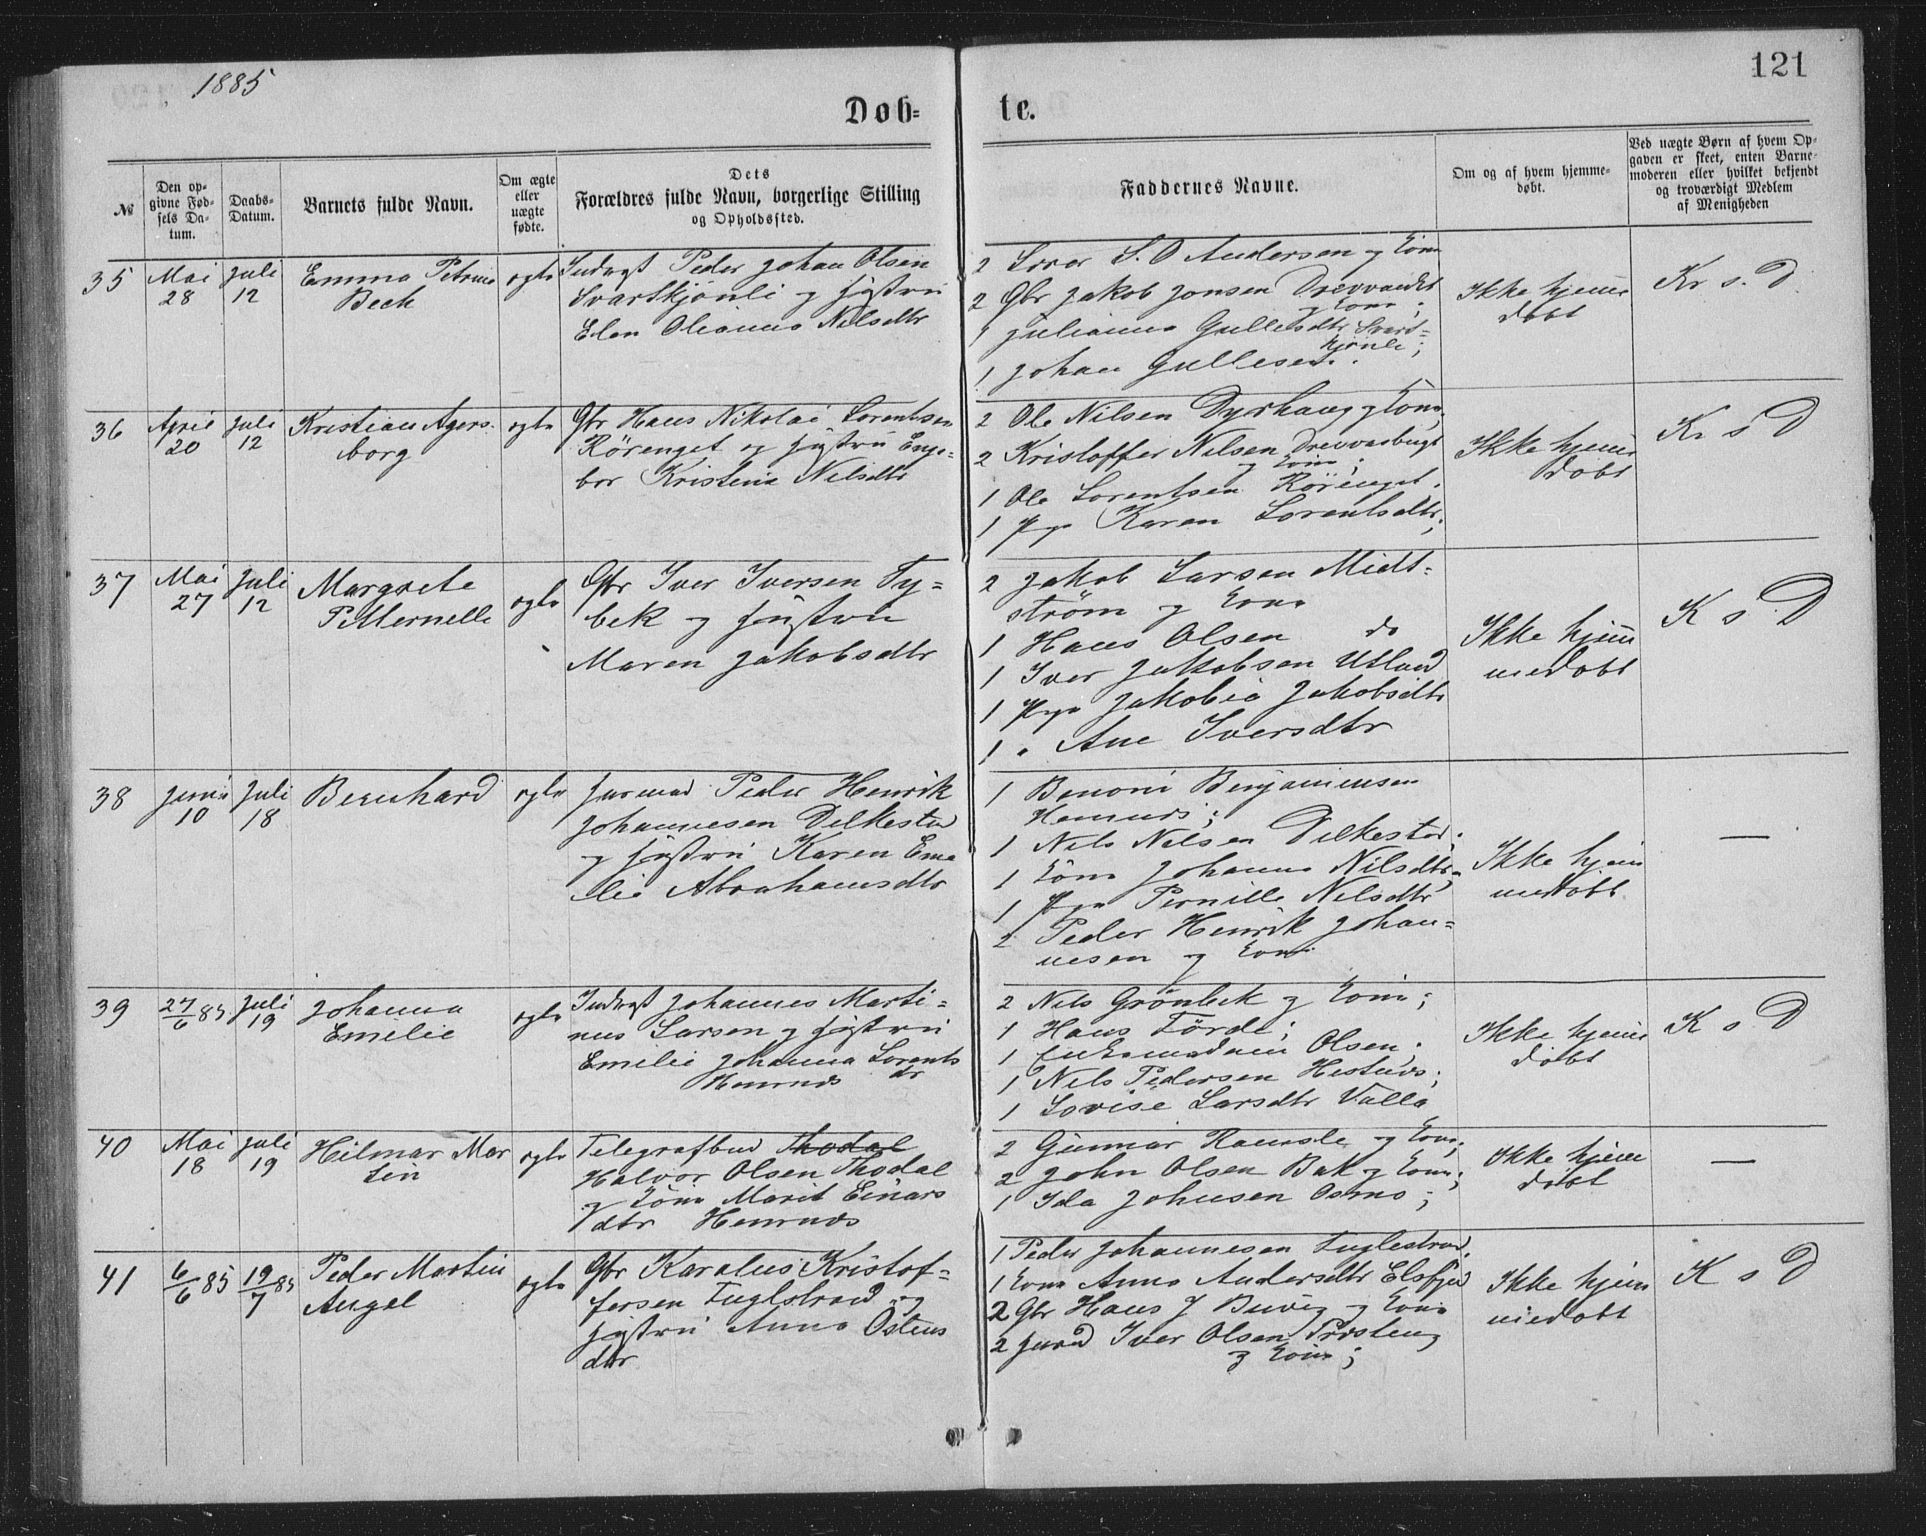 1885
121
Døb-
te.
№
Den op-
givne Fød-
sels Da-
tum.
Daabs-
Datum.
Barnets fulde Navn.
Om ægte
eller
uægte
fødte.
Dets
Forældres fulde Navn, borgerlige Stilling
og Opholdssted.
Faddernes Navne.
Om og af hvem hjemme-
døbt.
Ved uægte Børn af hvem Op-
gaven er skeet, enten Barne-
moderen eller hvilket bekjendt
og troværdigt Medlem
af Menigheden
35
Mai
28
Juli
12
Emma Petrine
Beck
ægte
Indrgst Peder Johan Olsen
Svartkjønli og Hustru
Elen Olianna Nilsdtr
2 S. O Andersen og Kone
2 Gbr Jakob Jonsen Drevvandet
og Kone ;
1 Julianna Gullesdtr Svart-
kjønli;
1 Johan Gullesen.
Ikke hjem
døbt
K s. D.
36
April
20
Juli
12
Kristian Agers-
borg
ægte
Gbr Hans Nikolai Lorentsen
Rörenget og Hustru Enge-
bor Kristine Nilsdtr
2 Ole Nilsen Dyrhaug og Kone,
2 Kristoffer Nilsen Drevvasbugt
og Kone ;
1 Ole Lorentsen Rörenget.
1 Pige Karen Lorentsdtr;
Ikke hjem
døbt
K s D
37
Mai
27
Juli
12
Margrete
Petternelle
ægte
Gbr Iver Iversen Ty-
bek og Hustru
Maren Jakobsdtr
2 Jakob Larsen Midt-
ström og Kone
1 Hans Olsen do
1 Iver Jakobsen Utland
1 Pige Jakobia Jakobsdtr
1 " Ane Iversdtr
Ikke hjem
medøbt
K s. D
38
Juni
10
Juli
18
Bernhard
ægte
Inrmd Peder Henrik
Johannesen Dilkestad
og Hustru Karen Eme
lie Abrahamsdtr
1 Benoni Benjaminsen
Hemnes;
1 Nils Nilsen Dilkestad;
1 Kone Johanna Nilsdtr;
1 Pige Pernille Nilsdtr
2 Peder Henrik Johan-
nesen og Kone
Ikke hjem
medøbt
—
39
27/6 85
Juli
19
Johanna
Emelie
ægte
Indrgst Johannes Marti-
nus Larsen og Hustru
Emilie Johanna Lorents
Hemnes dr
2 Nils Grønbek og Kone;
1 Hans Förde;
1 Enkemadam Olsen;
1 Nils Pedersen Hestnes;
1 Lovise Larsdtr Valla
Ikke hjem
døbt
K s D
40
Mai
18
Juli
19
Hilmar Mar
tin
ægte
Telegrafbud Thodal
Halvor Olsen Thodal
og Kone Marit Einars
dtr Hemnes
2 Gunnar Ramsle og Kone;
2 John Olsen Bak og Kone;
1 Ida Johnsen Osmo;
Ikke hjem
døbt
—
41
6/6 85
19/7 85
Peder Martin
Angel
ægte
Gbr Karalius Kristof-
fersen Fuglstrand og
Hustru Anna Ostens
dtr
1 Peder Johannesen Fuglestrand.
1 Kone Anna Andersdtr Elsfjord
2 Gbr Hans J Buvig og Kone
2 Inrd Iver Olsen Præsteng
og Kone;
Ikke hjem
medøbt
K s D